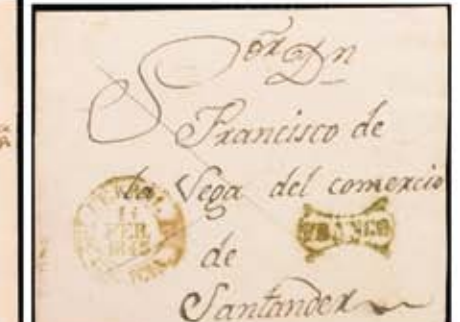 Sor Dn
Francisco de
la Vega del comercio
de
Santander
11
FEB
FRANCO